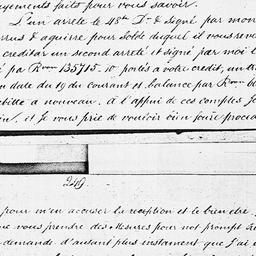 yements faits pour vous savoir.
L'un arrêté le 45bre Dr & signé par mon
& aguirre pour solde duquel il vous reve
creditar un second arreté & signé par moi l
pa Rvon 135715. 10 portés à votre credit, un tr
n date du 19 du courant & balancé par Rvon
debitté a nouveau. à l'appui de ces comptes Je
in, et Je vous prie de vouloir bien faire proceder
249
pour m'en accuser la reception et le bien être
ue vous prendre des Mesures pour not prompt
demande d'autant plus instament que J'ai